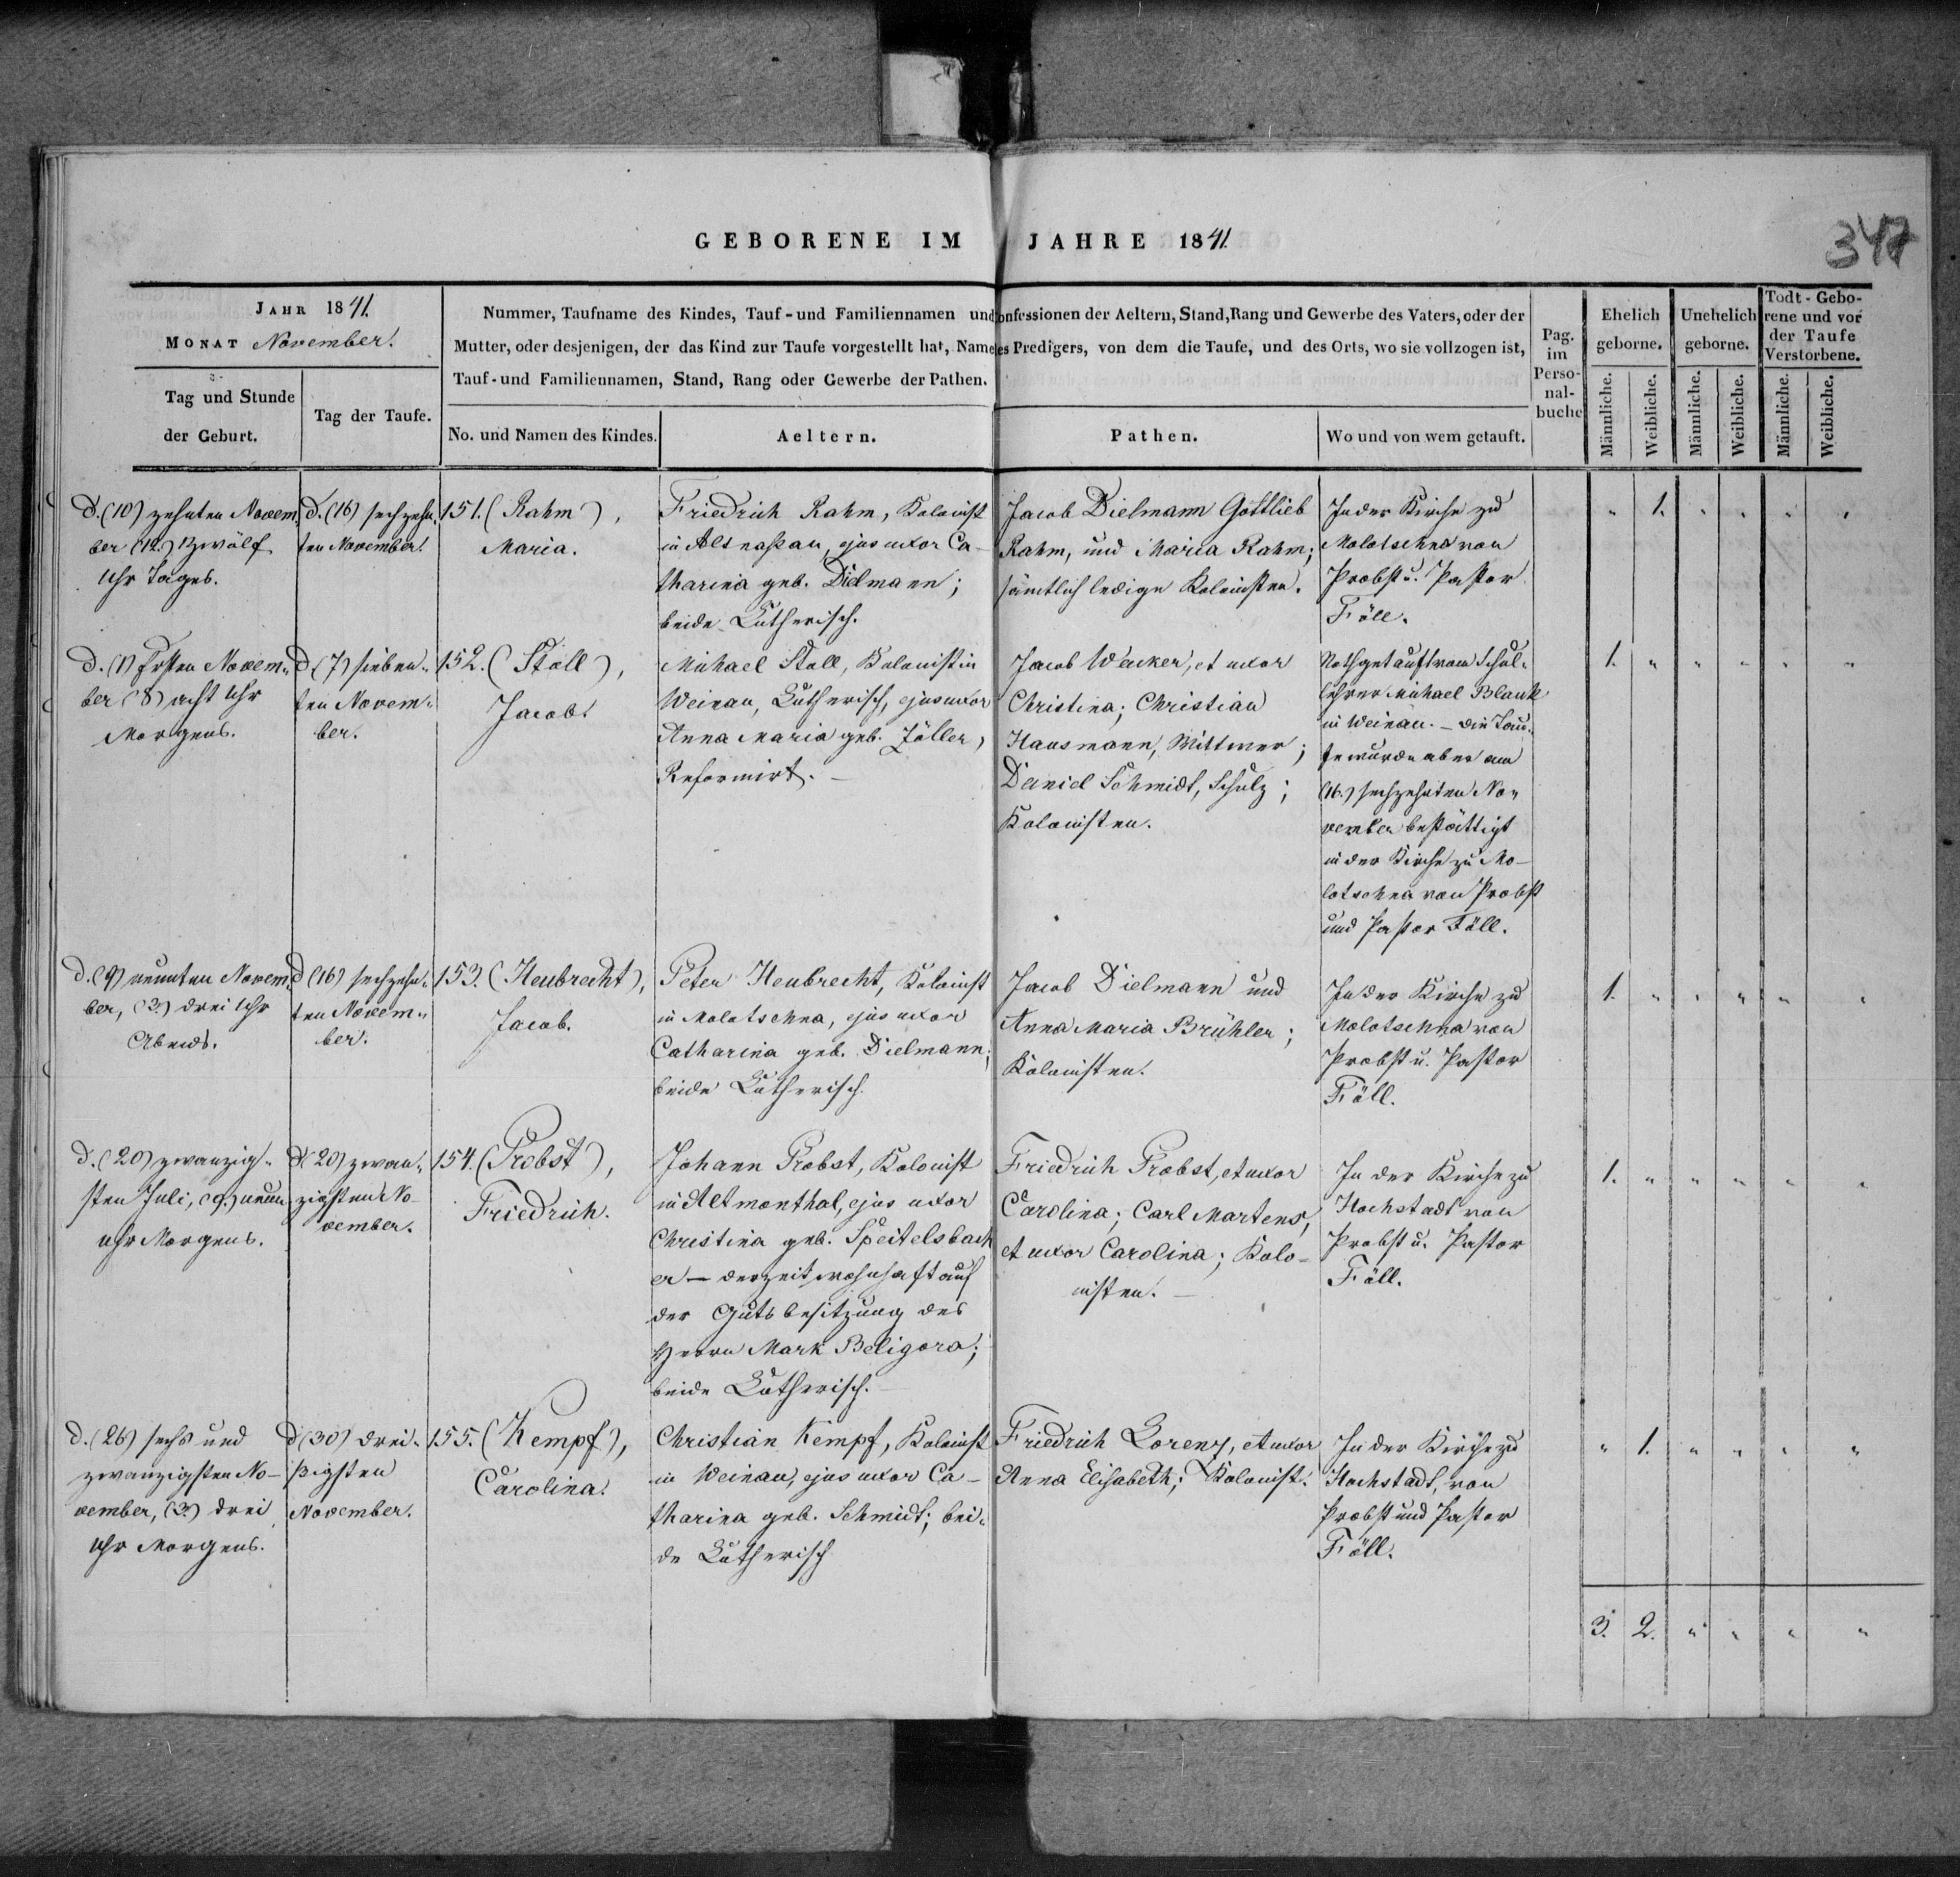 GEBORENE IM JAHRE 1841.
347
JAHR 1841.
MONAT November.
Tag und Stunde
der Geburt.
Tag der Taufe.
Nummer, Taufname des Kindes, Tauf-und Familiennamen und onfessionen der Aeltern, Stand, Rang und Gewerbe des Vaters, oder der
Mutter, oder desjenigen, der das Kind zur Taufe vorgestellt hat, Name es Predigers, von dem die Taufe, und des Orts, wo sie vollzogen ist,
Tauf-und Familiennamen, Stand, Rang oder Gewerbe der Pathen.
No. und Namen des Kindes.
Aeltern.
Pathen.
Wo und von wem getauft.
Pag.
im
Perso-
nal-
buche
Ehelich
geborne.
Unehelich
geborne.
Todt-Gebo-
rene und vor
der Taufe
Verstorbene.
Männliche.
Weibliche.
Männliche.
Weibliche.
Männliche.
Weibliche.
d. (10) zehnten Novem-
ber (12.) zwölf
Uhr Tages.
d. (16) sechzehn-
ten November.
151. (Rahm),
Maria.
Friedrich Rahm, Kolonist
in Altnaßau, ejus uxor Ca-
tharina geb. Dielmann;
beide Lutherisch.
Jacob Dielmann Gottlieb
Rahm, und Maria Rahm;
sämtlich ledige Kolonisten.
In der Kirche zu
Molotschna von
Probst u. Pastor
Föll.
" 1. " " " "
d. (1) Ersten Novem-
ber (8) acht Uhr
Morgens.
d. (7) sieben-
ten Novem-
ber.
152. (Stoll),
Jacob.
Michael Stoll, Kolonist in
Weinau, Lutherisch, ejus uxor
Anna Maria geb. Zöller,
Reformirt. —
Jacob Wacker, et uxor
Christina; Christian
Hausmann, Wittwer;
Daniel Schmidt, Schulz;
Kolonisten.
Nothgetauft vom Schul-
lehrer Michael Blank
in Weinau. — Die Tau-
fe wurde aber am
(16.) sechzehnten No-
vember bestättigt
in der Kirche zu Mo-
lotschna von Probst
und Pastor Föll.
1. " " " " "
d. (9) neunten Novem-
ber, (3.) drei Uhr
Abends.
d. (16) sechzehn-
ten Novem-
ber.
153. (Heubrecht),
Jacob.
Peter Heubrecht, Kolonist
in Molotschna, ejus uxor
Catharina geb. Dielmann;
beide Lutherisch.
Jacob Dielmann und
Anna Maria Brühler;
Kolonisten.
In der Kirche zu
Molotschna von
Probst u. Pastor
Föll.
1. " " " " "
d. (20) zwanzig-
sten Juli, (9.) neun
Uhr Morgens.
d. (20) zwan-
zigsten No-
vember.
154. (Probst),
Friedrich.
Johann Probst, Kolonist
in Altmonthal, ejus uxor
Christina geb. Speitelsbach
er — derzeit wohnhaft auf
der Gutsbesitzung des
Herrn Mark Beligora;
beide Lutherisch.
Friedrich Probst, et uxor
Carolina; Carl Martens,
et uxor Carolina; Kolo-
nisten. —
In der Kirche zu
Hochstadt von
Probst u. Pastor
Föll.
1. " " " " "
d. (26) sechs und
zwanzigsten No-
vember, (3.) drei
Uhr Morgens.
d. (30) drei-
ßigsten
November.
155. (Kempf),
Carolina.
Christian Kempf, Kolonist
in Weinau, ejus uxor Ca-
tharina geb. Schmidt; bei-
de Lutherisch
Friedrich Lorenz, et uxor
Anna Elisabeth; Kolonist.
In der Kirche zu
Hochstadt, von
Probst und Pastor
Föll.
" 1. " " " "
3. 2. " " " "